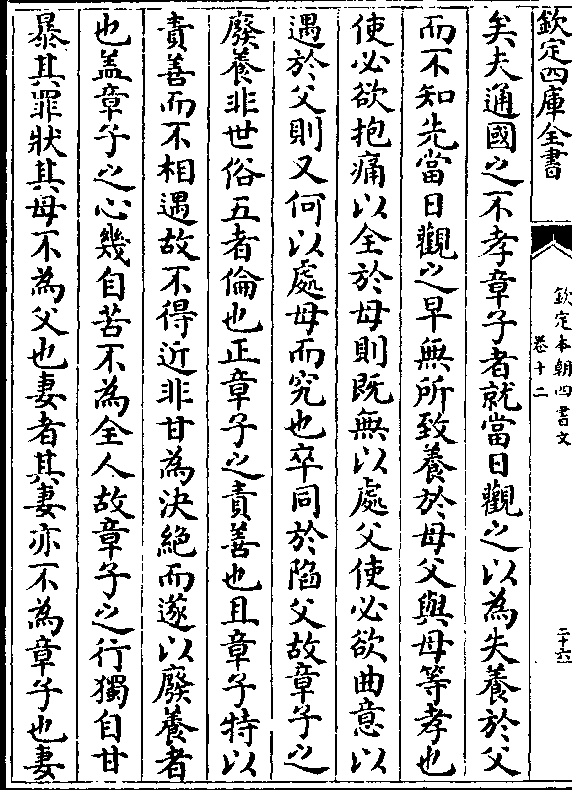 欽定四庫全書
欽定本朝四書文
卷十二
二十六
矣夫通國之不孝章子者就當日觀之以為失養於父
而不知先當日觀之早無所致養於母父與母等孝也
使必欲抱痛以全於母則既無以處父使必欲曲意以
遇於父則又何以處母而究也卒同於陷父故章子之
廢養非世俗五者倫也正章子之責善也且章子特以
責善而不相遇故不得近非甘為決絕而遂以廢養者
也蓋章子之心幾自苦不為全人故章子之行獨自甘
暴其罪狀其母不為父也妻者其妻亦不為章子也妻